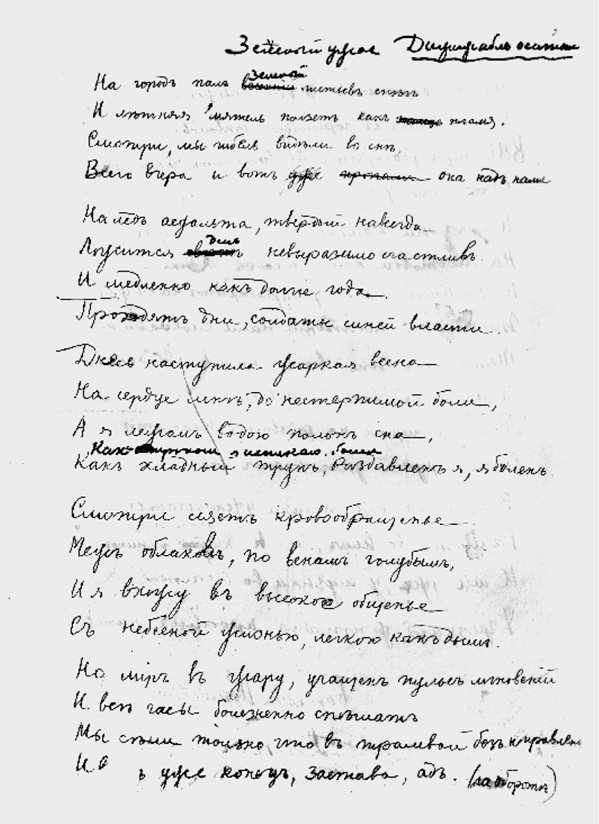 Зеленый ужас Дирижабль осатан
На городъ палъ зеленый листьевъ снѣгъ
И лѣтняя мятель ползетъ какъ пламя.
Смотри, мы гибель видѣли во снѣ,
Всего вчера и вотъ уже она надъ нами
На ледъ асфальта, твердый навсегда
Ложится день невыразимо счастливъ
И медленно какъ долгіе года
Проходятъ дни, солдаты синей власти
Днесь наступила жаркая весна
На сердце мнѣ, до нестерпимой боли,
А я лежалъ водою полонъ сна,
Какъ хладный трупъ, раздавленъ я, я боленъ
Смотри сіяетъ кровообращенье
Межъ облаковъ, по венамъ голубымъ,
И я вхожу въ высокое общенье
Съ небесной жизнью, легкою какъ дымъ.
Но міръ въ жару, учащенъ пульсъ мгновеній
И всѣ часы болезненно спѣшатъ
Мы сѣли только что въ трамвай безъ направлен
И уже конецъ, застава, адъ. (на оборотѣ)